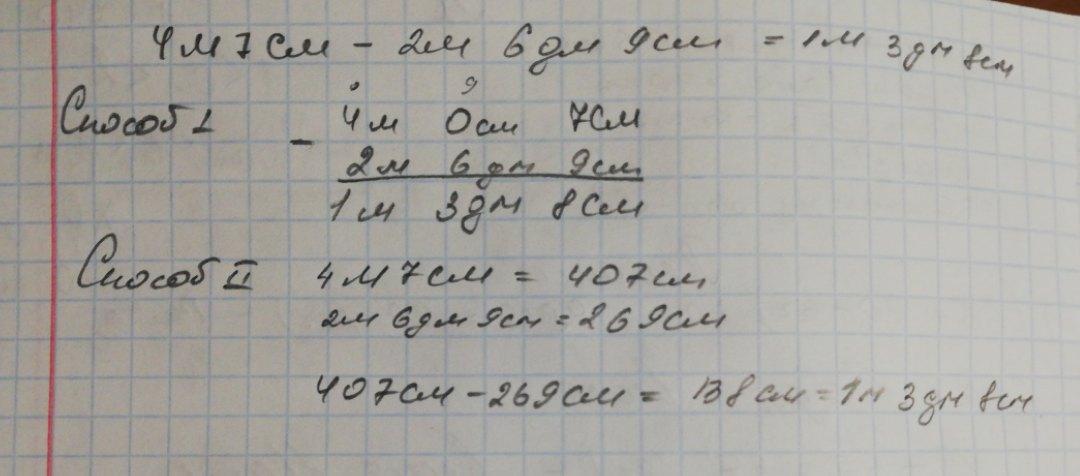 4м 7см – 2м 6дм 9см = 1м 3дм 8см
Способ I
. 9
– 4м 0см 7см
2м 6дм 9см
1м 3дм 8см
Способ II 4м 7см = 407см
2м 6дм 9см = 269см
407см – 269см = 138см = 1м 3дм 8см